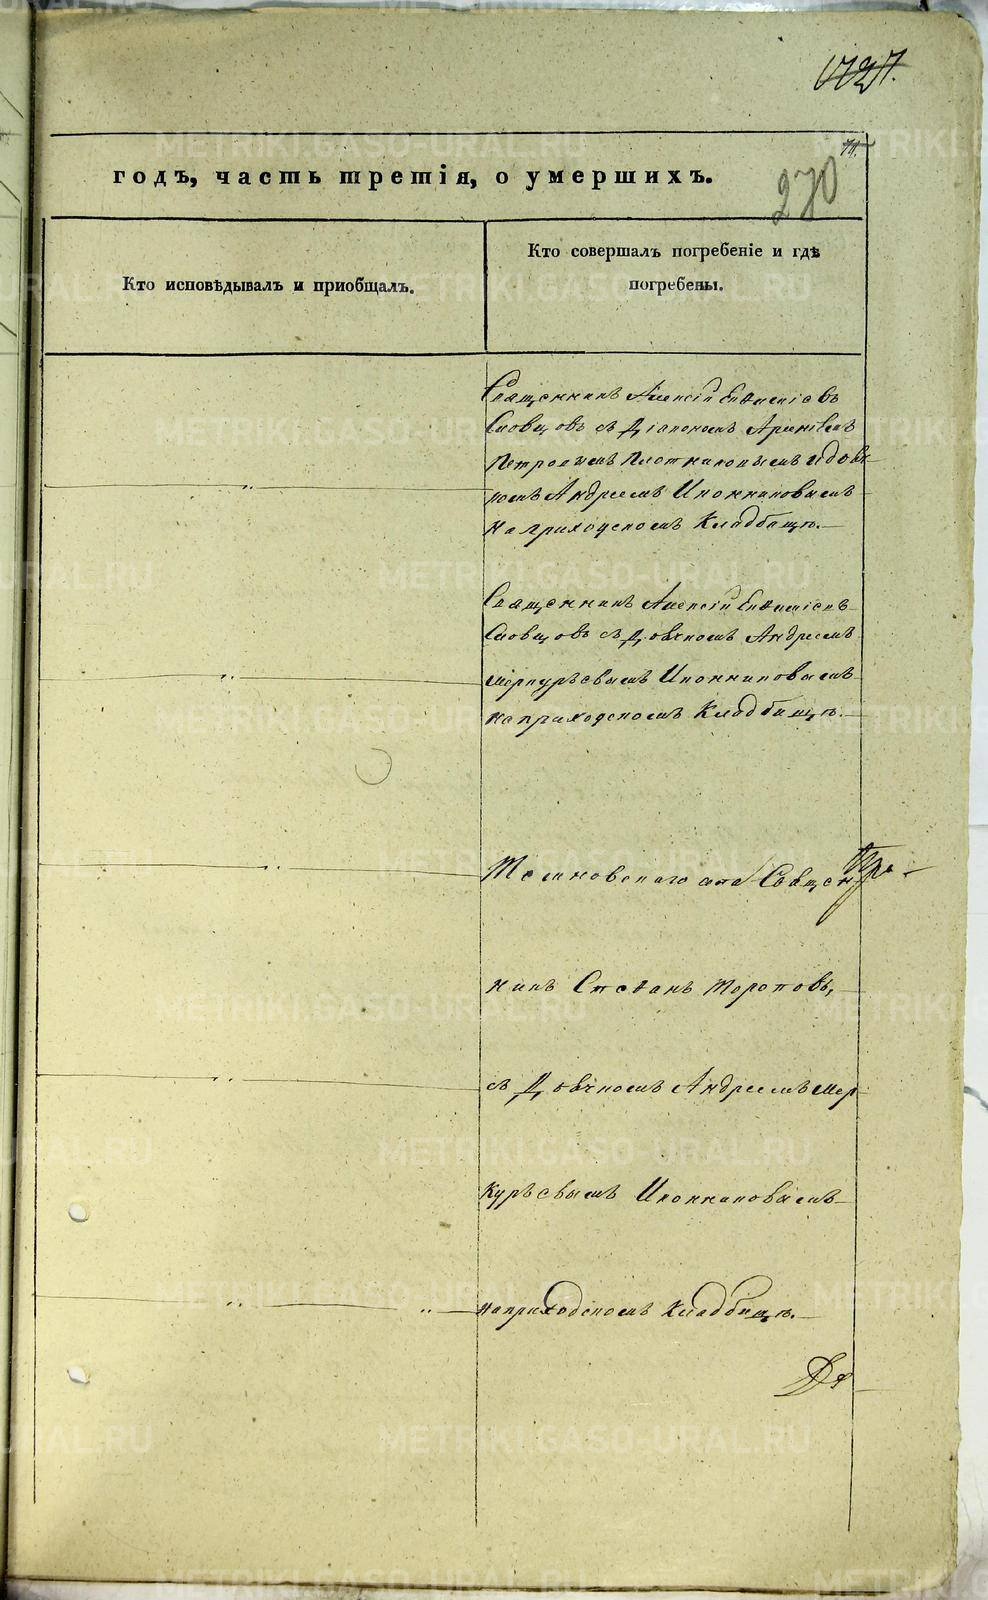 годъ, часть третія, о умершихъ.
270
Кто исповѣдывалъ и пріобщалъ.
Кто совершалъ погребеніе и гдѣ
погребены.
Священникъ Алексій Евѳиміевъ
Словцовъ съ Діакономъ
Петровымъ Плотниковымъ и дьяч
комъ Андреемъ Иконниковымъ
на приходскомъ Кладбищѣ.
Священникъ Алексій Евѳиміевъ
Словцовъ съ Дьячкомъ Андреемъ
Меркурьевымъ Иконниковымъ
на приходскомъ Кладбищѣ.
села Священ
никъ Стефанъ Тороповъ,
съ Дьячкомъ Андреемъ Мер
курьевымъ Иконниковымъ
на приходскомъ Кладбищѣ.
METRIKI.GASO-URAL.RU